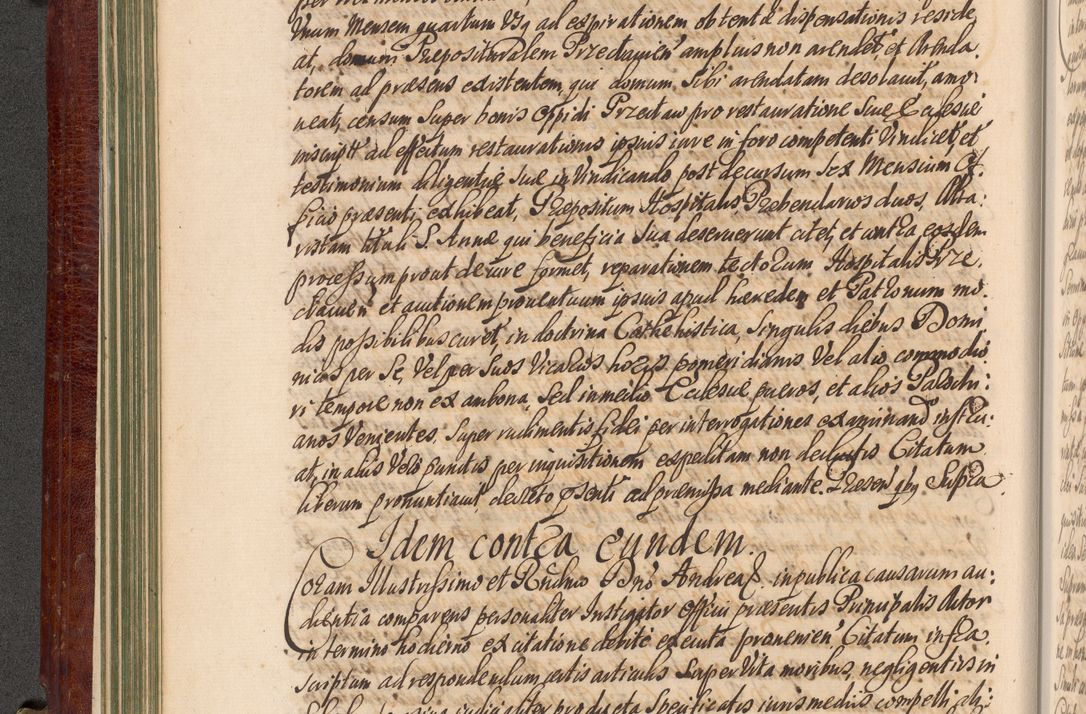 Unum Mensem quartum Vsq ad expirationem obtentæ dispensationis reside
at, domum Præpositoralem Przectavien amplius non arendet, et Arenda
torem ad præsens existentem, qui domum Sibi arendatam desolavit, amo
veat, censum Super bonis Oppidi Przectaw pro restauratione Suæ Ecclesiæ
inscript ad effectum restaurationis ipsius iure in foro competenti Vindicet, et
testimonium diligentiæ Suæ in Vindicando post decursum Sex Mensium Of:
ficio præsenti exhibeat, Præpositum Hospitalis, Præbendarios duos, Alta:
ristam tituli S. Annæ qui beneficia Sua deseruerunt citet, et contra eosdem
processum prout de iure formet, reparationem tectorum Hospitalis Prze
ctavien et auctionem proventuum ipsius apud hæredem et Patronum mo:
dis possibilibus curet, in doctrina Cathehistica, Singulis diebus Domi
nicis per Se, Vel per Suos Vicarios horis pomeridianis Vel alio commodio
ri tempore non ex ambona, Sed in medio Ecclesiæ pueros, et alios Parochi:
anos Venientes, Super rudimentis fidei per interrogationes examinand instru:
at, in aliis Vero punctis per inquisitionem expeditam non deductis Citatum
liberum pronuntiavit, decreto psenti ad præmissa mediante. Præsen qbq Supra.
Idem contra eundem.
Coram Illustrissimo et Rndmo Dno Andrea in publica causarum au:
dientia comparens personaliter Instigator Officii præsentis Principalis Actor
in termino hodierno ex citatione debite executa provenien Citatum infra
scriptum ad respondendum certis articulis Super Vita moribus, negligentiis in